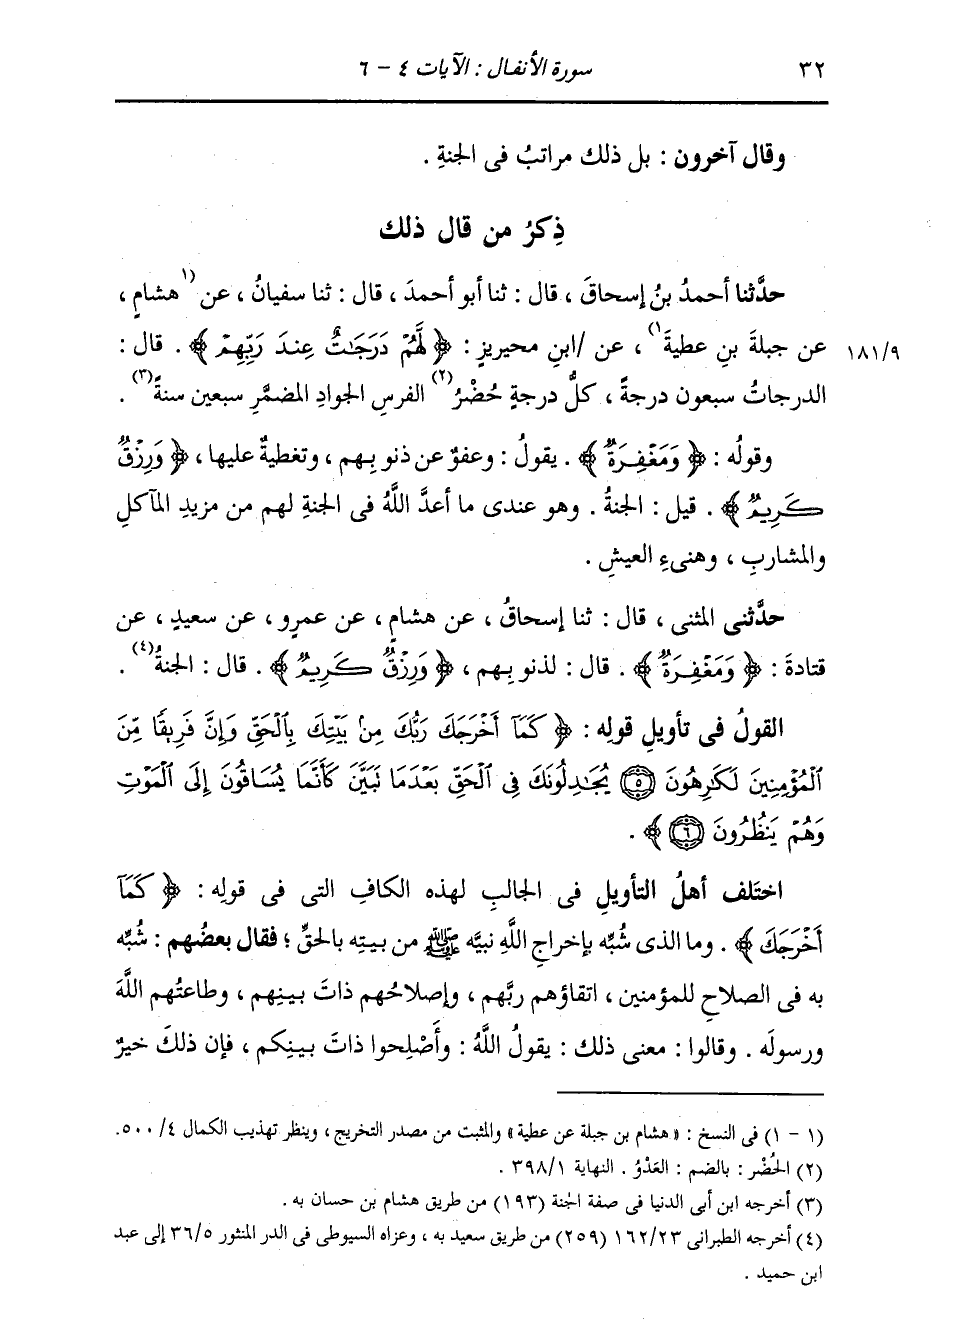 ٣٢ سورة الأنفال : الآيات ٤ - ٦
وقال آخرون : بل ذلك مراتبُ فى الجنةِ .
ذِكرُ من قال ذلك
حدَّثنا أحمدُ بنُ إسحاقَ ، قال : ثنا أبو أحمدَ ، قال : ثنا سفيانُ ، عن (١هشامٍ ،
عن جبلةَ بنِ عطيةَ١) ، عن /ابنِ محيريزٍ : ﴿ لَّهُمْ دَرَجَٰتٌ عِندَ رَبِّهِمْ ﴾ . قال : ١٨١/٩
الدرجاتُ سبعون درجةً ، كلُّ درجةٍ حُضْرُ(٢) الفرسِ الجوادِ المضمَّرِ سبعين سنةً(٣) .
وقولُه : ﴿ وَمَغْفِرَةٌ ﴾ . يقولُ : وعفوٌ عن ذنوبِهم ، وتغطيةٌ عليها ، ﴿ وَرِزْقٌ
كَرِيمٌ ﴾ . قيل : الجنةُ . وهو عندى ما أعدَّ اللَّهُ فى الجنةِ لهم من مزيدِ المآكلِ
والمشاربِ ، وهنىءِ العيشِ .
حدَّثنى المثنى ، قال : ثنا إسحاقُ ، عن هشامٍ ، عن عمرٍو ، عن سعيدٍ ، عن
قتادةَ : ﴿ وَمَغْفِرَةٌ ﴾ . قال : لذنوبِهم ، ﴿ وَرِزْقٌ كَرِيمٌ ﴾ . قال : الجنةُ(٤) .
القولُ فى تأويلِ قولِه : ﴿ كَمَآ أَخْرَجَكَ رَبُّكَ مِنۢ بَيْتِكَ بِٱلْحَقِّ وَإِنَّ فَرِيقًا مِّنَ
ٱلْمُؤْمِنِينَ لَكَٰرِهُونَ ٥ يُجَٰدِلُونَكَ فِى ٱلْحَقِّ بَعْدَمَا تَبَيَّنَ كَأَنَّمَا يُسَاقُونَ إِلَى ٱلْمَوْتِ
وَهُمْ يَنظُرُونَ ٦ ﴾ .
اختَلف أهلُ التأويلِ فى الجالبِ لهذه الكافِ التى فى قولِه : ﴿ كَمَآ
أَخْرَجَكَ ﴾ . وما الذى شُبِّه بإخراجِ اللَّهِ نبيَّه ﷺ من بيتِه بالحقِّ ؛ فقال بعضُهم : شُبِّه
به فى الصلاحِ للمؤمنين ، اتقاؤهم ربَّهم ، وإصلاحُهم ذاتَ بينِهم ، وطاعتُهم اللَّهَ
ورسولَه . وقالوا : معنى ذلك : يقولُ اللَّهُ : وأَصْلِحوا ذاتَ بينِكم ، فإن ذلكَ خيرٌ
(١ - ١) فى النسخ : « هشام بن جبلة عن عطية » والمثبت من مصدر التخريج ، وينظر تهذيب الكمال ٤/ ٥٠٠.
(٢) الحُضْر : بالضم : العَدْوُ . النهاية ١/ ٣٩٨ .
(٣) أخرجه ابن أبى الدنيا فى صفة الجنة (١٩٣) من طريق هشام بن حسان به .
(٤) أخرجه الطبرانى ١٦٢/٢٣ (٢٥٩) من طريق سعيد به ، وعزاه السيوطى فى الدر المنثور ٣٦/٥ إلى عبد
ابن حميد .